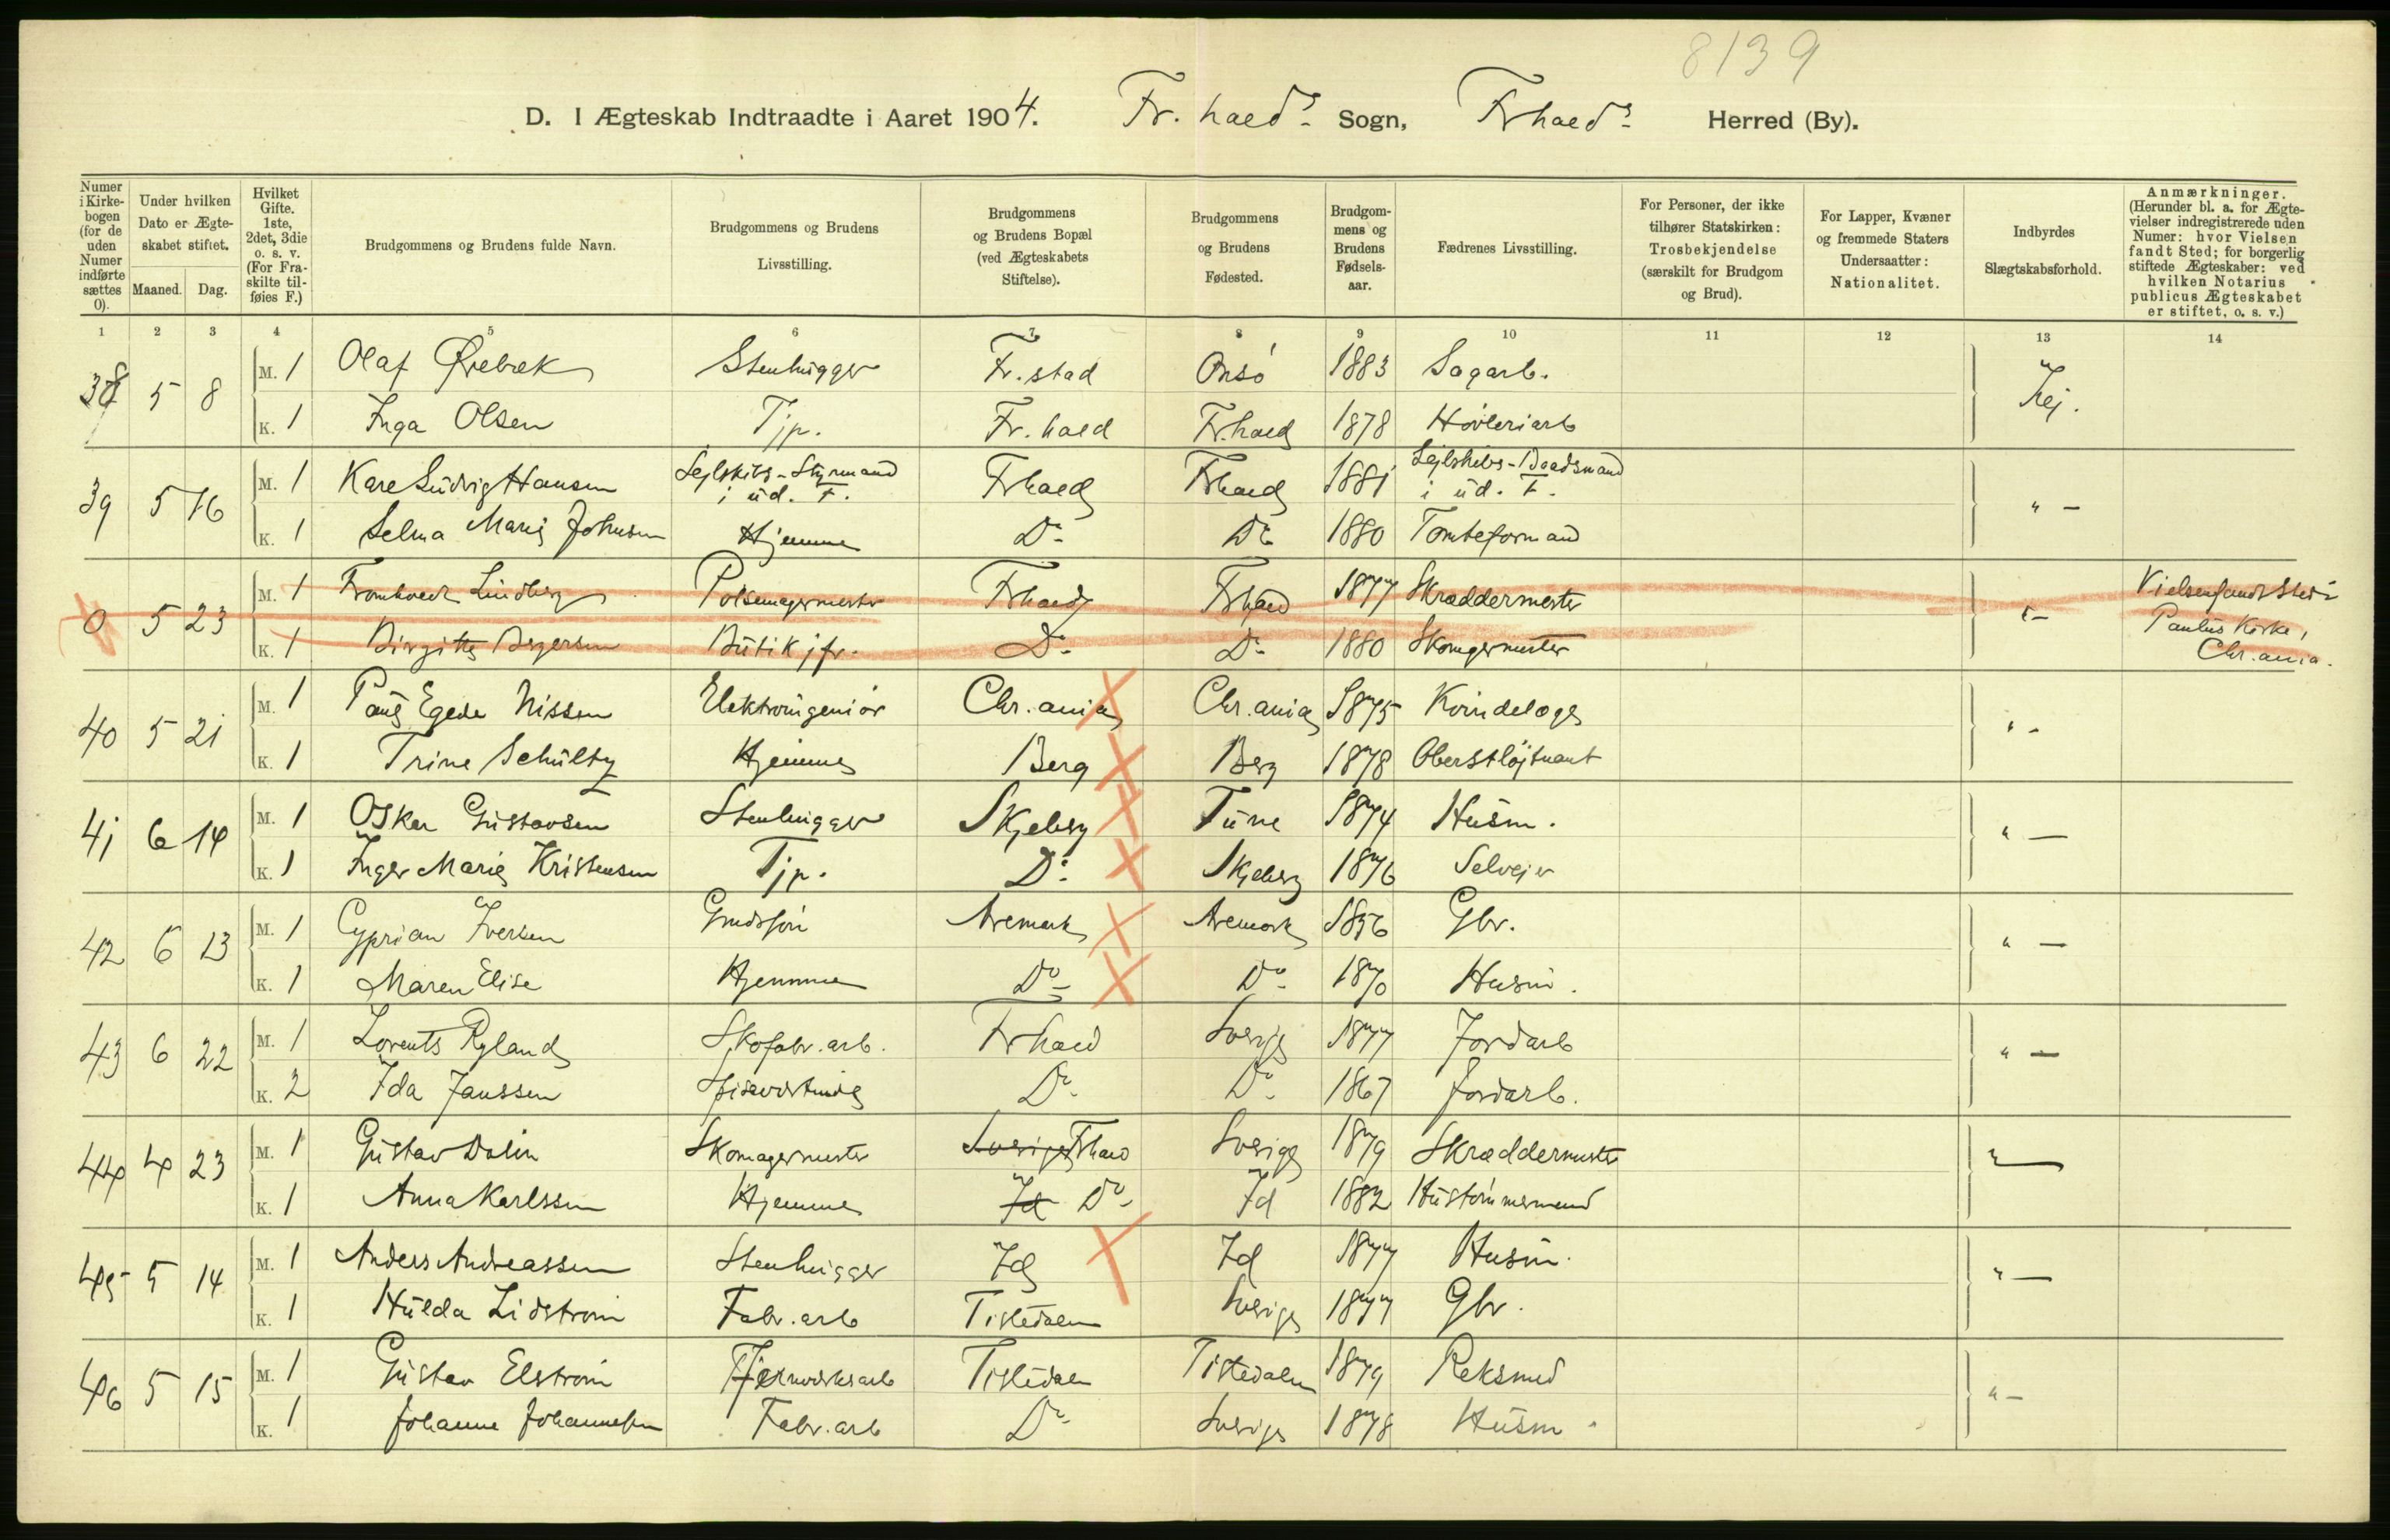 8139
D. I Ægteskab Indtraadte i Aaret 1904. Fr. hald? Sogn, Frhald? Herred (By).
Numer i Kirkebogen (for de uden Numer indførte sættes 0). | Under hvilken Dato er Ægteskabet stiftet. Maaned. Dag. | Hvilket Gifte. 1ste, 2det, 3die o. s. v. (For Fraskilte tilføies F.) | Brudgommens og Brudens fulde Navn. | Brudgommens og Brudens Livsstilling. | Brudgommens og Brudens Bopæl (ved Ægteskabets Stiftelse). | Brudgommens og Brudens Fødested. | Brudgommens og Brudens Fødselsaar. | Fædrenes Livsstilling. | For Personer, der ikke tilhører Statskirken: Trosbekjendelse (særskilt for Brudgom og Brud). | For Lapper, Kvæner og fremmede Staters Undersaatter: Nationalitet. | Indbyrdes Slægtskabsforhold. | Anmærkninger. (Herunder bl. a. for Ægtevielser indregistrerede uden Numer: hvor Vielsen fandt Sted; for borgerlig stiftede Ægteskaber: ved hvilken Notarius publicus Ægteskabet er stiftet, o. s. v.)
1 2 3 4 5 6 7 8 9 10 11 12 13 14
38 5 8 M. 1 Olaf Ørebæk Stenhugger Fr.stad Onsö 1883 Sagarb. Nej.
K. 1 Inga Olsen Tjp. Fr. hald Fr.hald 1878 Høvleriarb
39 5 16 M. 1 Kare Ludvig Hansen Sejlskibs-Styrmand i ud. F. Frhald Frhald 1881 Sejlskibs-Baadsmand i ud. F. " -
K. 1 Selma Marie Johnsen Hjemme Do Do 1880 Tomteformand
0 5 23 M. 1 Lindberg Pølsemagermester Frhald Frhald 1877 Skræddermester " - Vielsen fandt Sted i
K. 1 Birgitte Bergersen Butikjfr. Do Do 1880 Skomagermester Paulus Kirke, Chr.ania.
40 5 21 M. 1 Paul Egede Nissen Elektroingeniör Chr.ania Chr.ania 1875 Kvindelæge " -
K. 1 Trine Schultz Hjemme Berg Berg 1878 Oberstløjtnant
41 6 14 M. 1 Oskar Gustavsen Stenhugger Skjeberg Tune 1874 Husm. " -
K. 1 Inger Marie Kristensen Tjp. Do Skjeberg 1876 Selvejer
42 6 13 M. 1 Cyprian Iversen Aremark Aremark 1856 Gbr. " -
K. 1 Maren Elise Hjemme Do Do 1870 Husm.
43 6 22 M. 1 Lorents Ryland Skofabr.arb. Frhald Sverige 1877 Jordarb " -
K. 2 Ida Janssen Spisevertinde Do Do 1867 Jordarb.
44 4 23 M. 1 Gustav Dalin Skomagermester Sverige Frhald Sverige 1879 Skræddermester " -
K. 1 Anna Karlssen Hjemme Id Do Id 1882 Hustømmermand
45 5 14 M. 1 Anders Andreassen Stenhugger Id Id 1877 Husm. " -
K. 1 Hulda Lidstrøm Fabr.arb Tistedalen Sverige 1877 Gbr.
46 5 15 M. 1 Gustav Elstrøm Jernverksarb Tistedalen Tistedalen 1879 " -
K. 1 Johanne Johannesen Fabr.arb Do Sverige 1878 Husm.